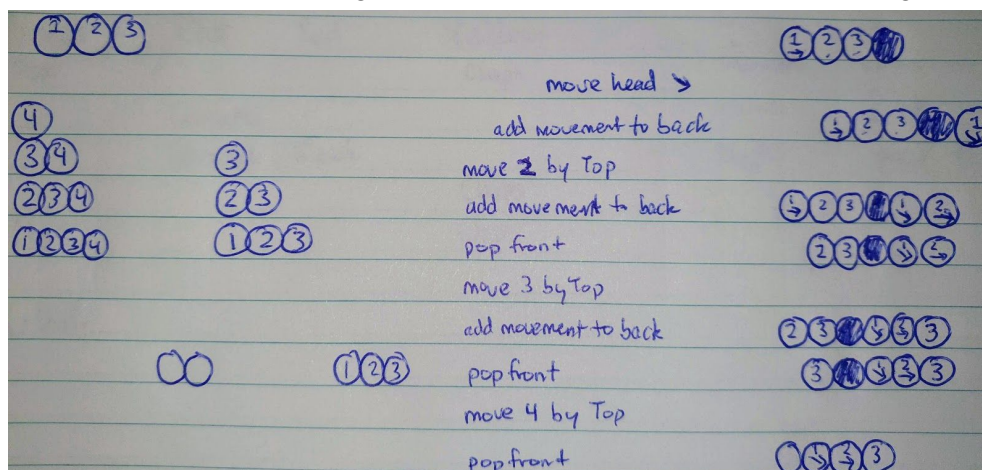 1 2 3 1 2 3
move head ↘
4 add movement to back 1 2 3 1
3 4 3 move 2 by Top
2 3 4 2 3 add movement to back 1 2 3 1 2
1 2 3 4 1 2 3 pop front 2 3 1 2
move 3 by Top
add movement to back 2 3 1 2 3
1 2 3 pop front 3 1 2 3
move 4 by Top
pop front 1 2 3